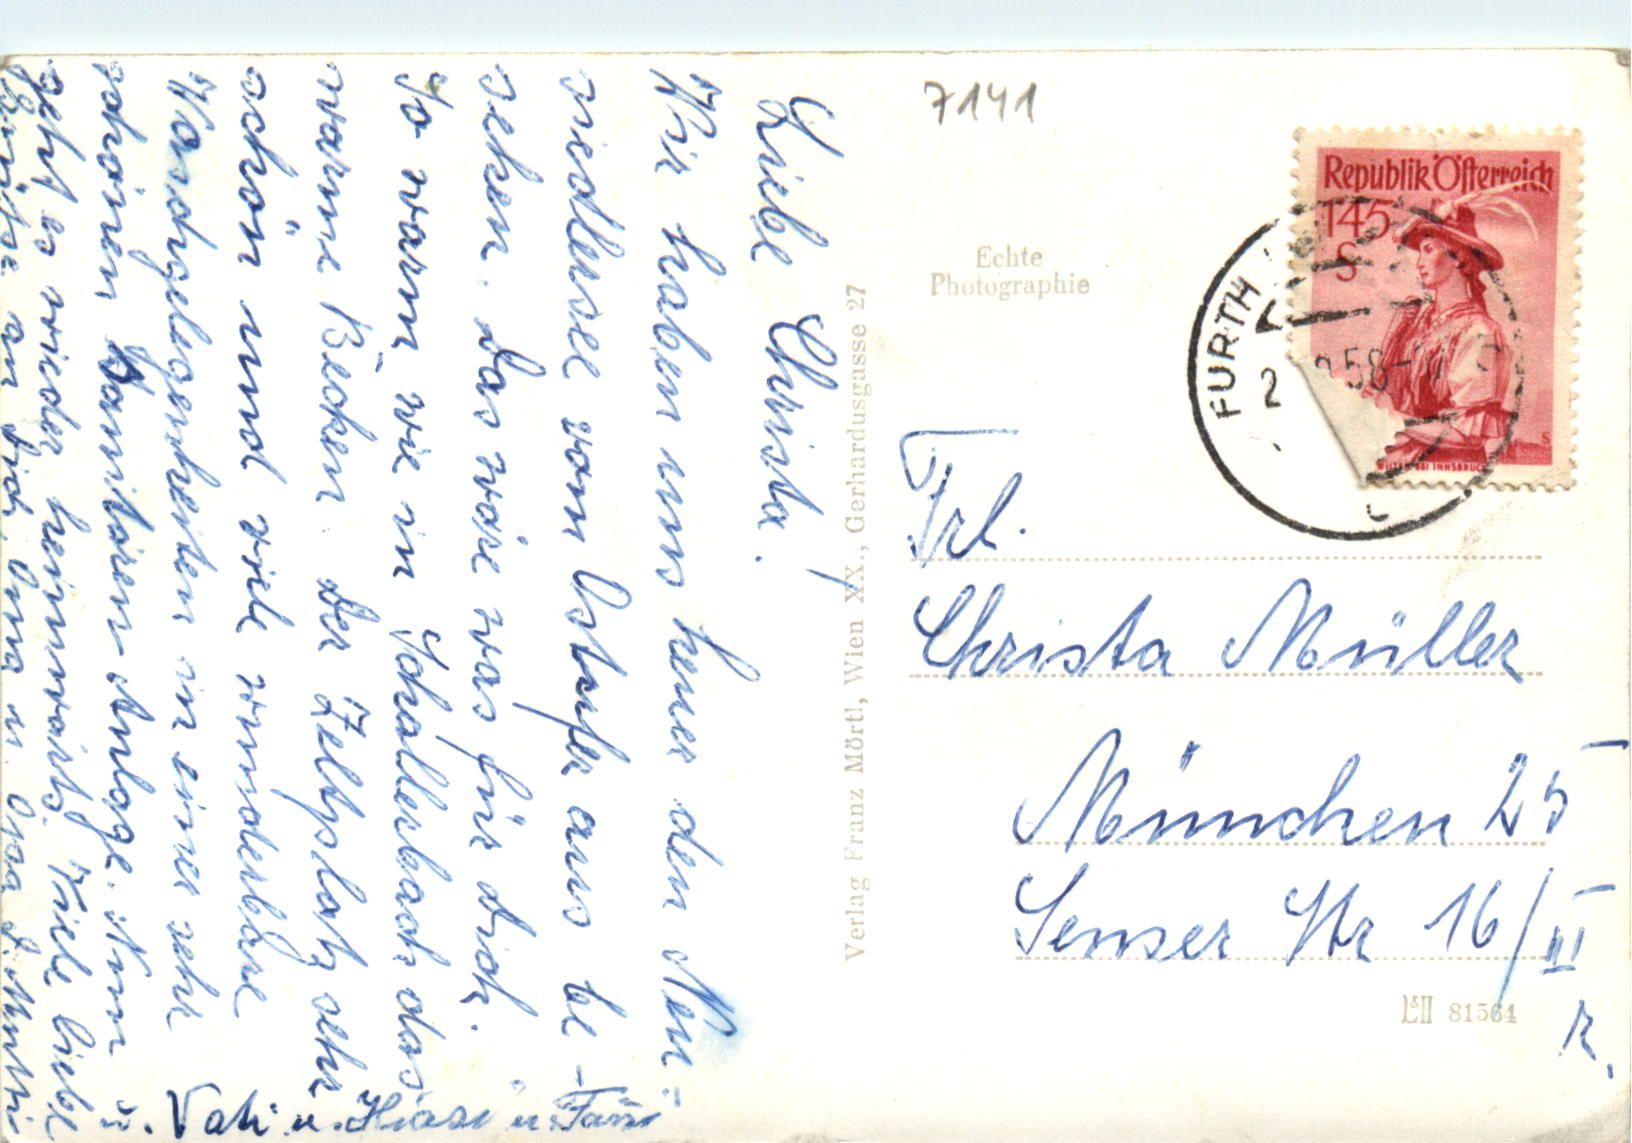 Liebe Christa!
Wir haben uns heuer den Neu
siedlersee vom Ostufer aus be-
sehen. Das wäre was für dich.
So warm wie in Schallerbach das
warme Becken. Der Zeltplatz sehr
schön und viele wunderbare
Waschgelegenheiten in einer sehr
schönen sanitären Anlage. Nun
geht es wieder heimwärts. Viele liebe
Grüße an dich, Oma u. Opa d. Mutti
u. Vati u. Hiasi u. "Fanni"
Verlag Franz Mörtl, Wien XX., Gerhardusgasse 27
7141
Echte
Photographie
Republik Österreich
1 45
S
WILTEN BEI INNSBRUCK
FURTH
2 858-1
Frl.
Christa Müller
München 25
Senser Str 16/III
R.
L&H 81564